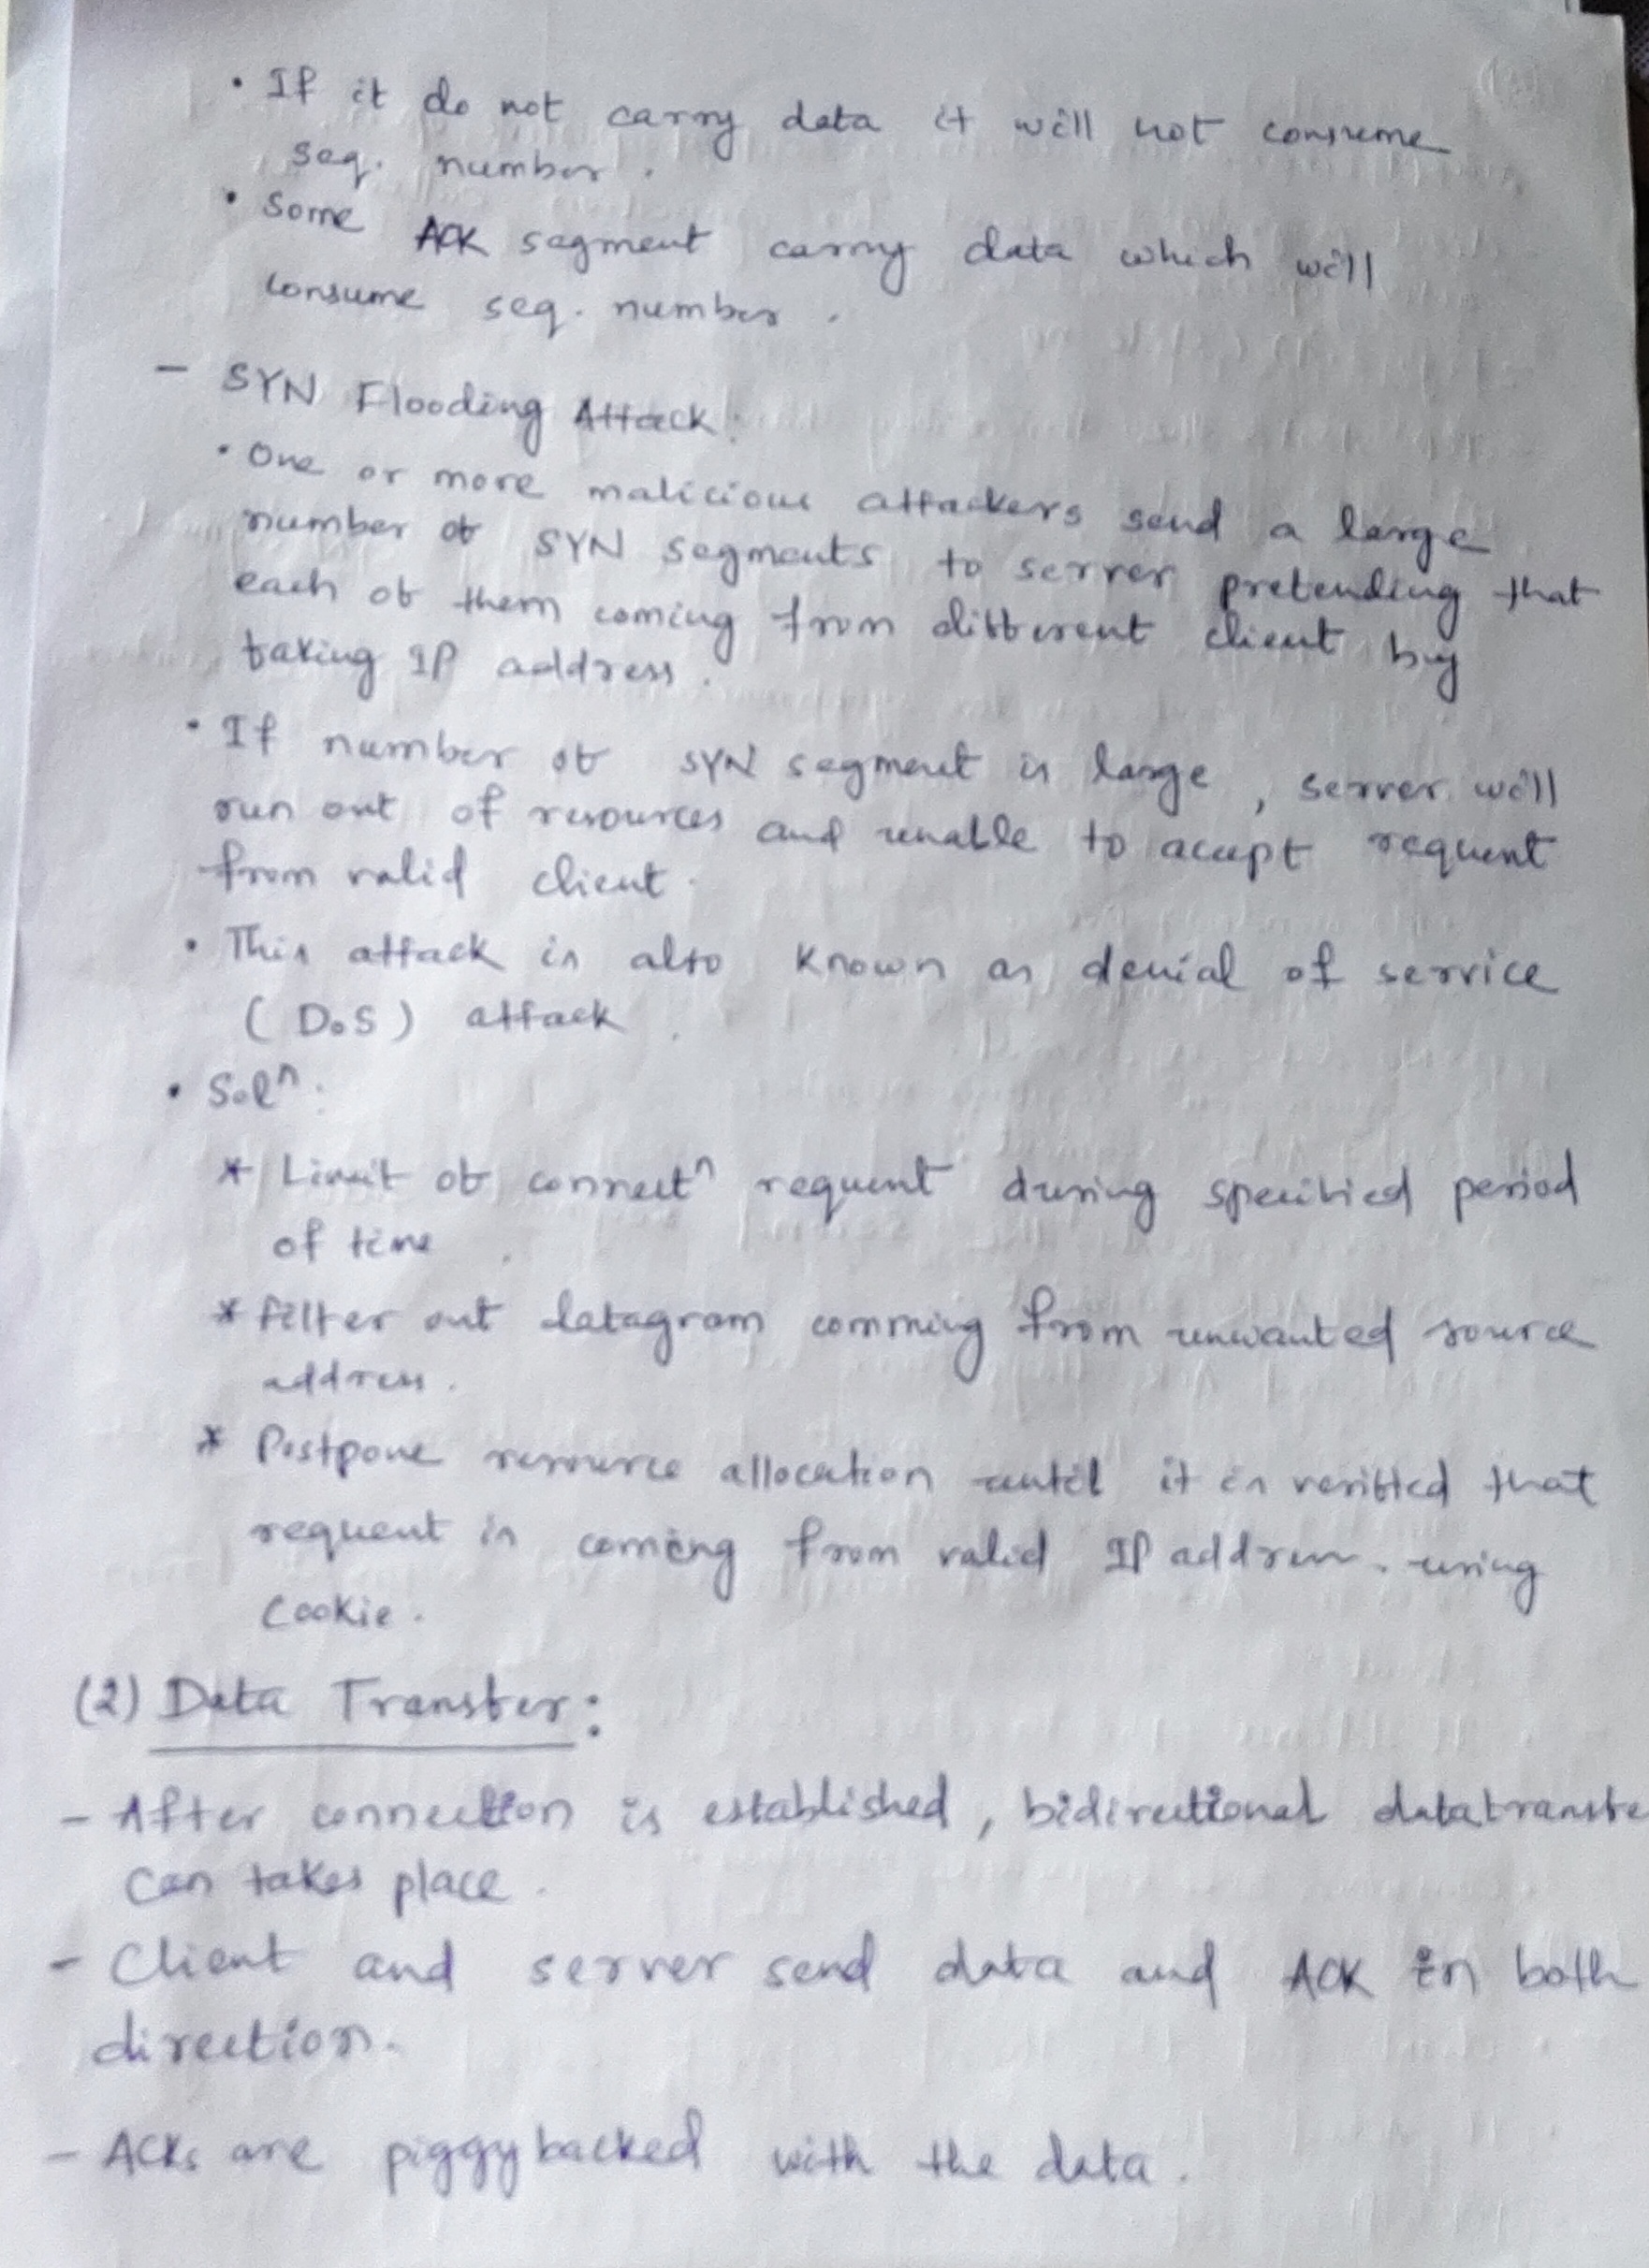 • If it do not carry data it will not consume
seq. number.
• Some ACK segment carry data which will
consume seq. number.
- SYN Flooding Attack:
• One or more malicious attackers send a large
number of SYN segments to server pretending that
each of them coming from different client by
faking IP address.
• If number of SYN segment is large, server will
run out of resources and unable to accept request
from valid client.
• This attack is also known as denial of service
(DoS) attack.
• Solⁿ:
* Limit of connectⁿ request during specified period
of time.
* filter out datagram comming from unwanted source
address.
* Postpone resource allocation until it is verified that
request is coming from valid IP address. using
cookie.
(2) Data Transfer:
- After connection is established, bidirectional datatransfe
can takes place.
- Client and server send data and ACK in both
direction.
- ACKs are piggybacked with the data.